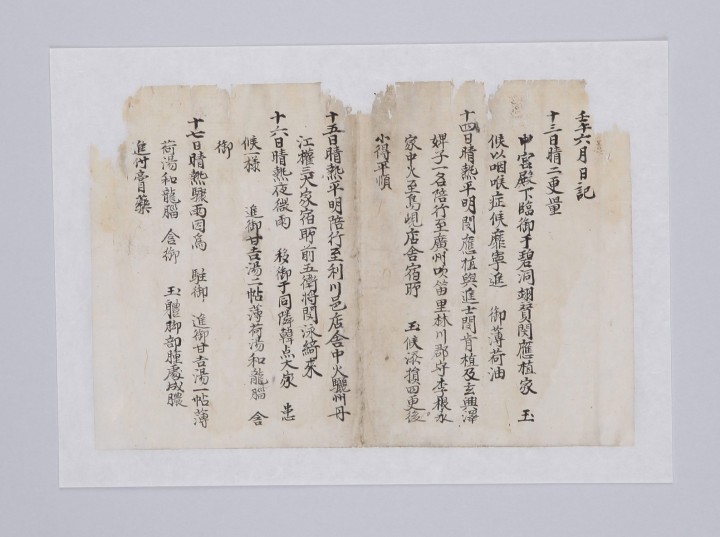 壬午六月日記
十三日晴二更量
中宮殿下臨御于碧洞翊贊閔應植家 玉
候以咽喉症候靡寧進 御薄荷油
十四日晴熱平明閔應植與進士閔肯植及玄興澤
婢子一名陪行至廣州吹笛里林川郡守李根永
家中火至鳥峴店舍宿所 玉候添損四更後
小得平順
十五日晴熱平明陪行至利川邑店舍中火驪州丹
江權三大家宿所前五衛將閔泳綺來
十六日晴熱夜微雨 移御于同隣韓点大家 患
候一樣 進御甘吉湯二帖薄荷湯和龍腦 含
御
十七日晴熱驟雨因爲 駐御 進御甘吉湯一帖薄
荷湯和龍腦 含御 玉體脚部腫處成膿
進付膏藥